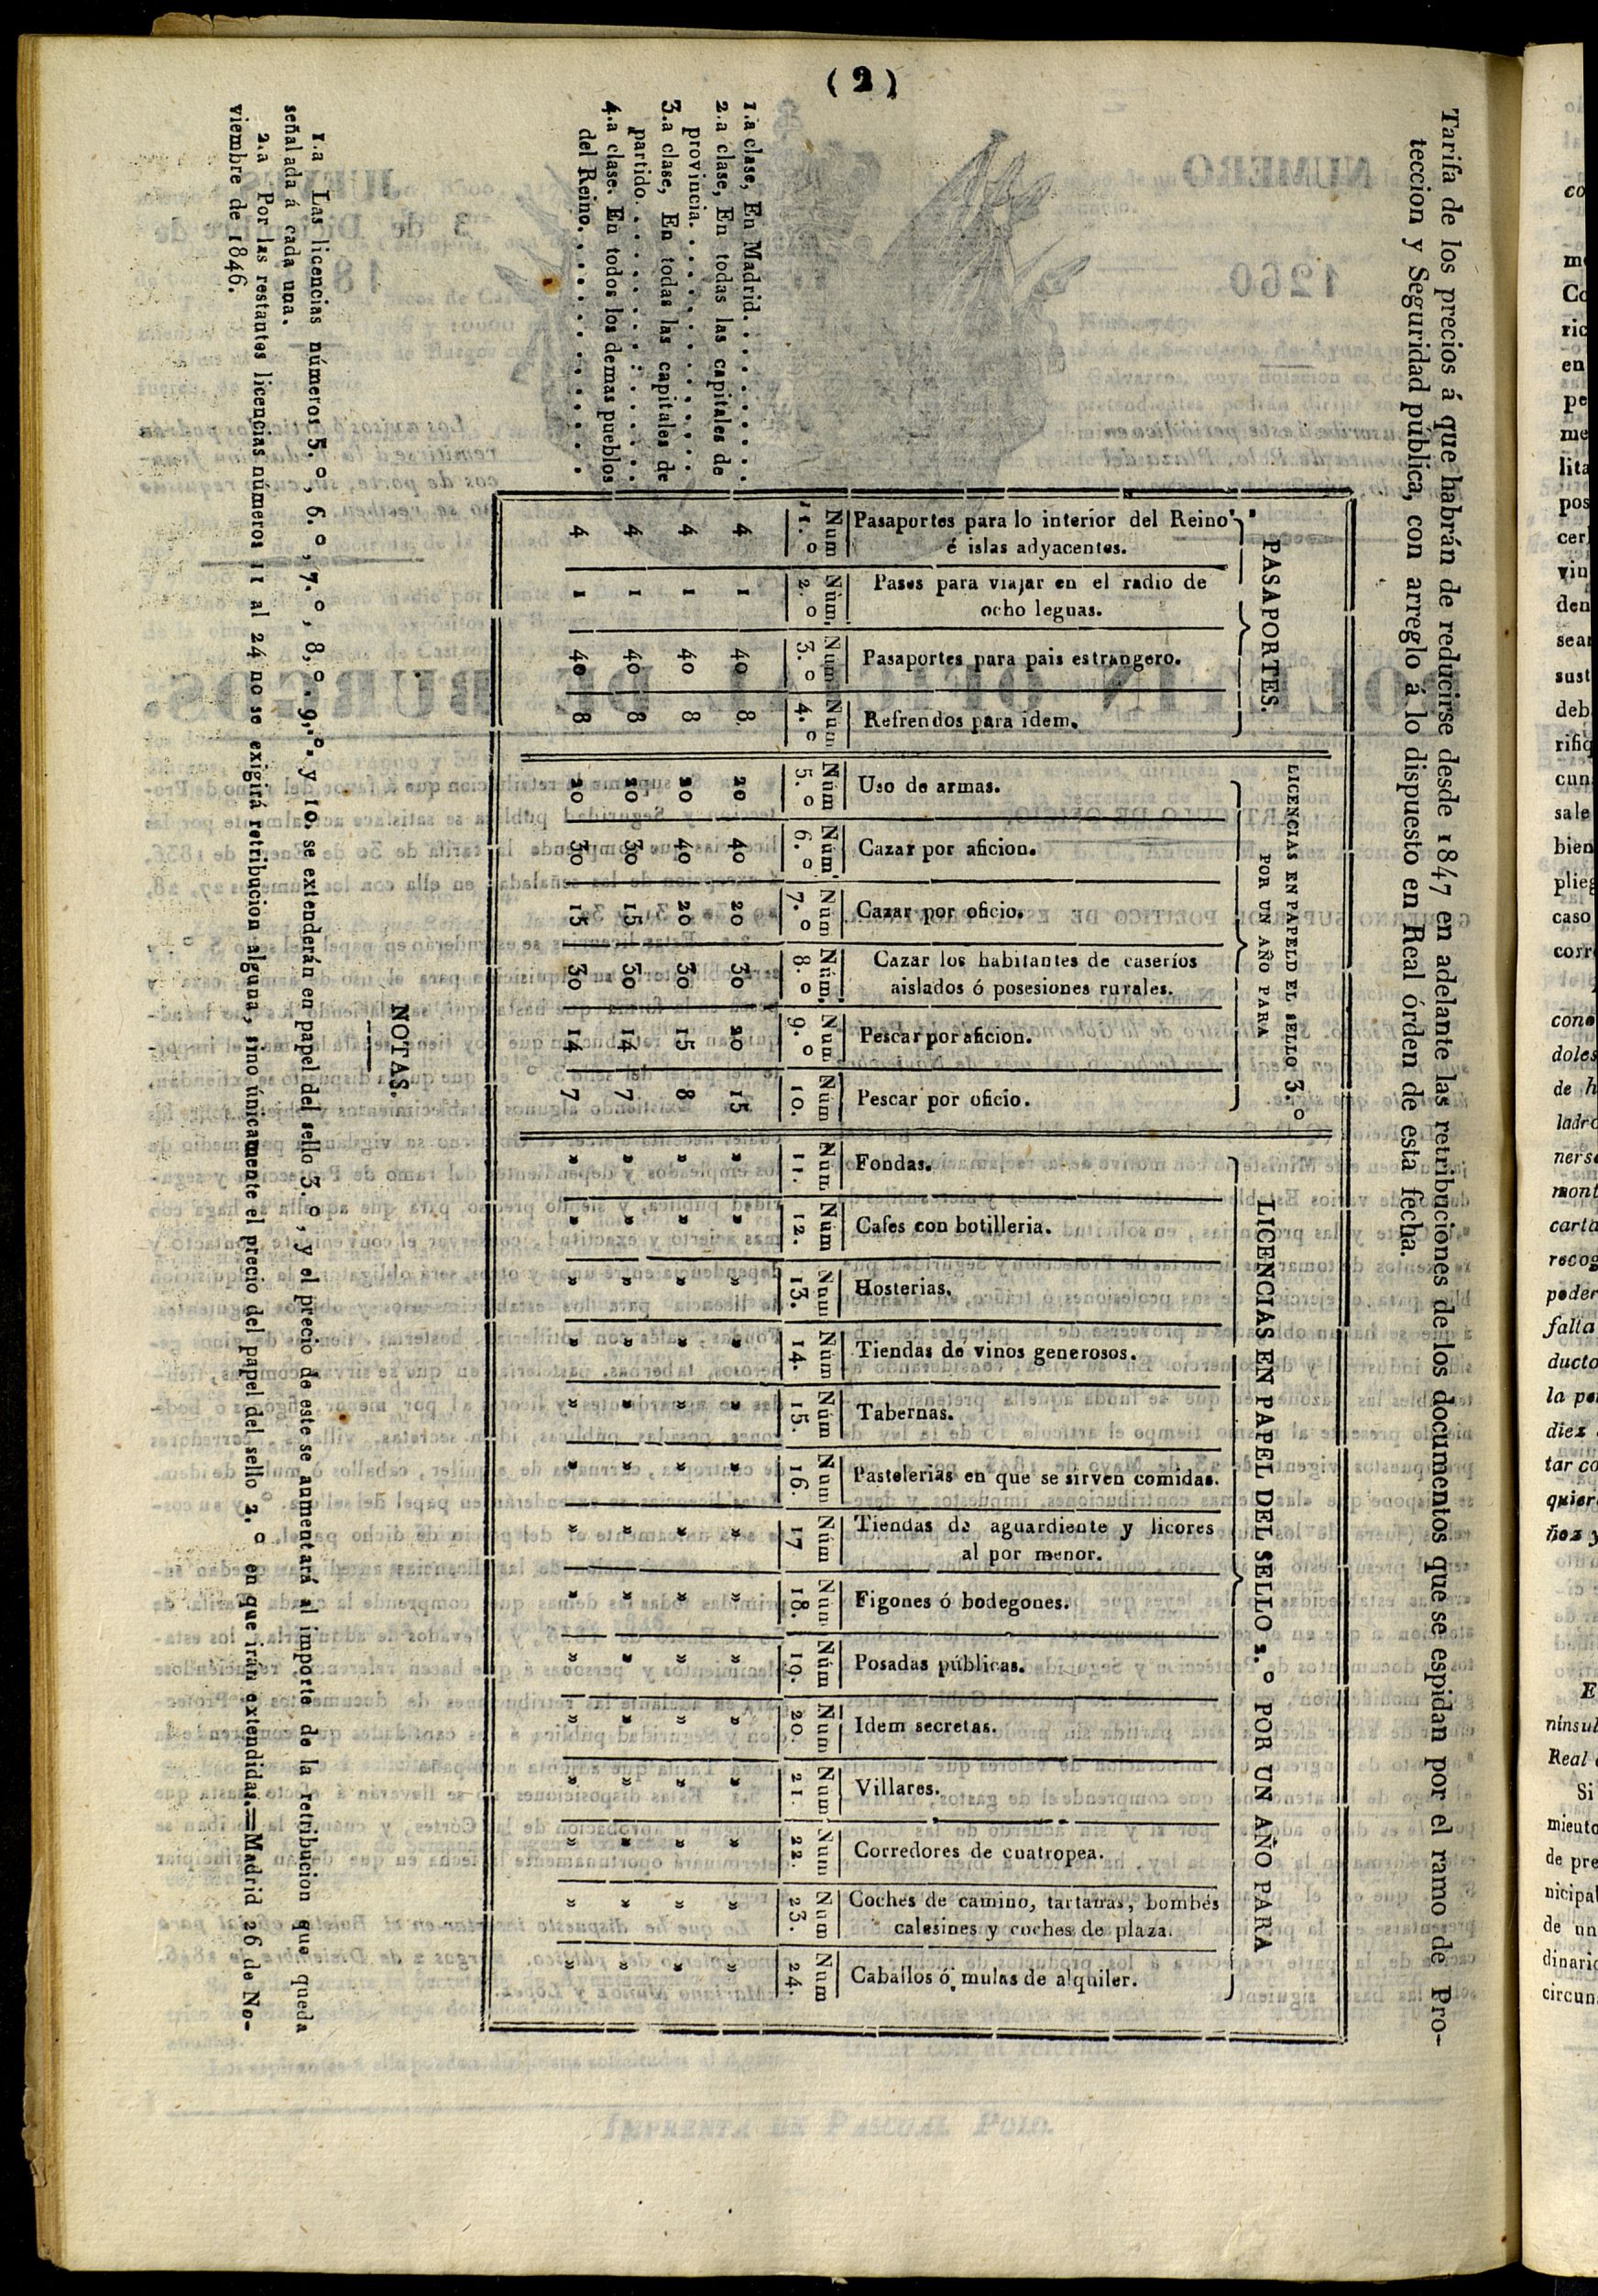 ( 2 )
Tarifa de los precios á que habrán de reducirse desde 1847 en adelante las retribuciones de los documentos que se espidan por el ramo de Pro-
teccion y Seguridad pública, con arreglo á lo dispuesto en Real órden de esta fecha.
PASAPORTES.
Pasaportes para lo interior del Reino
é islas adyacentes.
Num 1.º
4 4 4 4
Pases para viajar en el radio de
ocho leguas.
Núm. 2.º
1 1 1 1
Pasaportes para pais estrangero.
Num 3.º
40 40 40 40
Refrendos para idem.
Num 4.º
8. 8 8 8
LICENCIAS EN PAPELD EL SELLO 3.º
POR UN AÑO PARA
Uso de armas.
Núm 5.º
20 20 20 20
Cazar por aficion.
Núm. 6.º
40 40 30 30
Cazar por oficio.
Num 7.º
20 20 15 15
Cazar los habitantes de caseríos
aislados ó posesiones rurales.
Núm. 8.º
30 30 30 30
Pescar por aficion.
Num 9.º
20 15 14 14
Pescar por oficio.
Num 10.
15 8 7 7
LICENCIAS EN PAPEL DEL SELLO 2.º POR UN AÑO PARA
Fondas.
Num 11.
» » » »
Cafes con botilleria.
Núm 12.
» » » »
Hosterias.
Num 13.
» » » »
Tiendas de vinos generosos.
Núm 14.
» » » »
Tabernas.
Núm 15.
» » » »
Pastelerias en que se sirven comidas.
Num 16.
» » » »
Tiendas de aguardiente y licores
al por menor.
Núm 17
» » » »
Figones ó bodegones.
Num 18.
» » » »
Posadas públicas.
Núm 19.
» » » »
Idem secretas.
Num 20.
» » » »
Villares.
Num 21.
» » » »
Corredores de cuatropea.
Num 22.
» » » »
Coches de camino, tartanas, bombés
calesines y coches de plaza.
Num 23.
» » » »
Caballos ó mulas de alquiler.
Num 24.
» » » »
1.a clase, En Madrid. . . . . . . .
2.a clase, En todas las capitales de
provincia. . . . . . . . . . . .
3.a clase, En todas las capitales de
partido. . . . . . . . . . . . .
4.a clase. En todos los demas pueblos
del Reino. . . . . . . . . . . .
NOTAS.
1.a Las licencias números 5.º, 6.º, 7.º, 8.º. 9.º. y 10. se extenderán en papel del sello 3.º, y el precio de este se aumentará al importe de la retribucion que queda
señalada á cada una.
2.a Por las restantes licencias números 11 al 24 no se exigirá retribucion alguna, sino únicamente el precio del papel del sello 2.º en que irán extendidas.=Madrid 26 de No-
viembre de 1846.